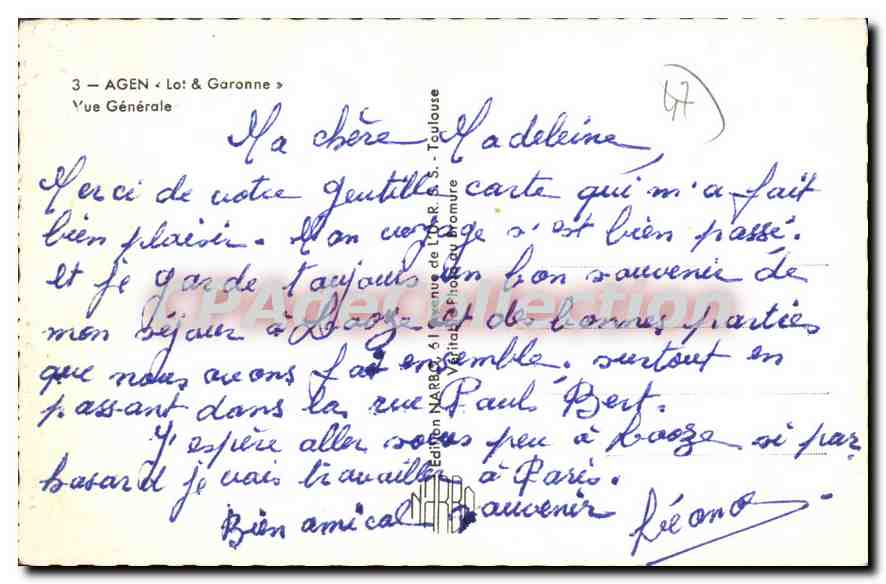 3 — AGEN « Lot & Garonne »
Vue Générale
47
Ma chère Madeleine,
Merci de votre gentille carte qui m'a fait
bien plaisir. Mon voyage s'est bien passé.
et je garde toujours un bon souvenir de
mon séjour à Looze et des bonnes parties
que nous avons fait ensemble. surtout en
passant dans la rue Paul Bert.
J'espère aller sous peu à Looze si par
hasard je vais travailler à Paris.
Bien amical souvenir
Edition NARBO, 61 Avenue de L'U.R.S.S. - Toulouse
Véritable Photo au Bromure
NARBO
CPAgeCollection